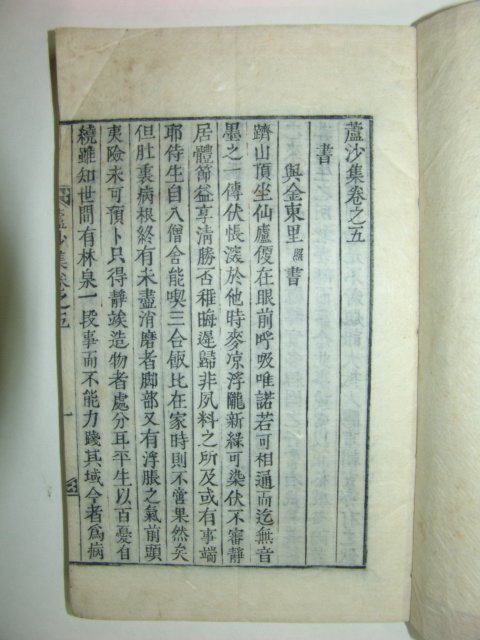 蘆沙集卷之五
書
與金東里 照 書
躋山頂坐仙廬優在眼前呼吸唯諾若可相通而迄無音
墨之一傳伏悵滾於他時麥凉浮隴新綠可染伏不審靜
居體節益享淸勝否稚晦遲歸非夙料之所及或有事端
耶侍生自入僧舍能喫三合飯比在家時則不啻果然矣
但肚裏病根終有未盡消磨者脚部又有浮脹之氣前頭
夷險未可預卜只得靜竢造物者處分耳平生以百憂自
繞雖知世間有林泉一段事而不能力踐其域今者爲病
蘆沙集卷之五
一